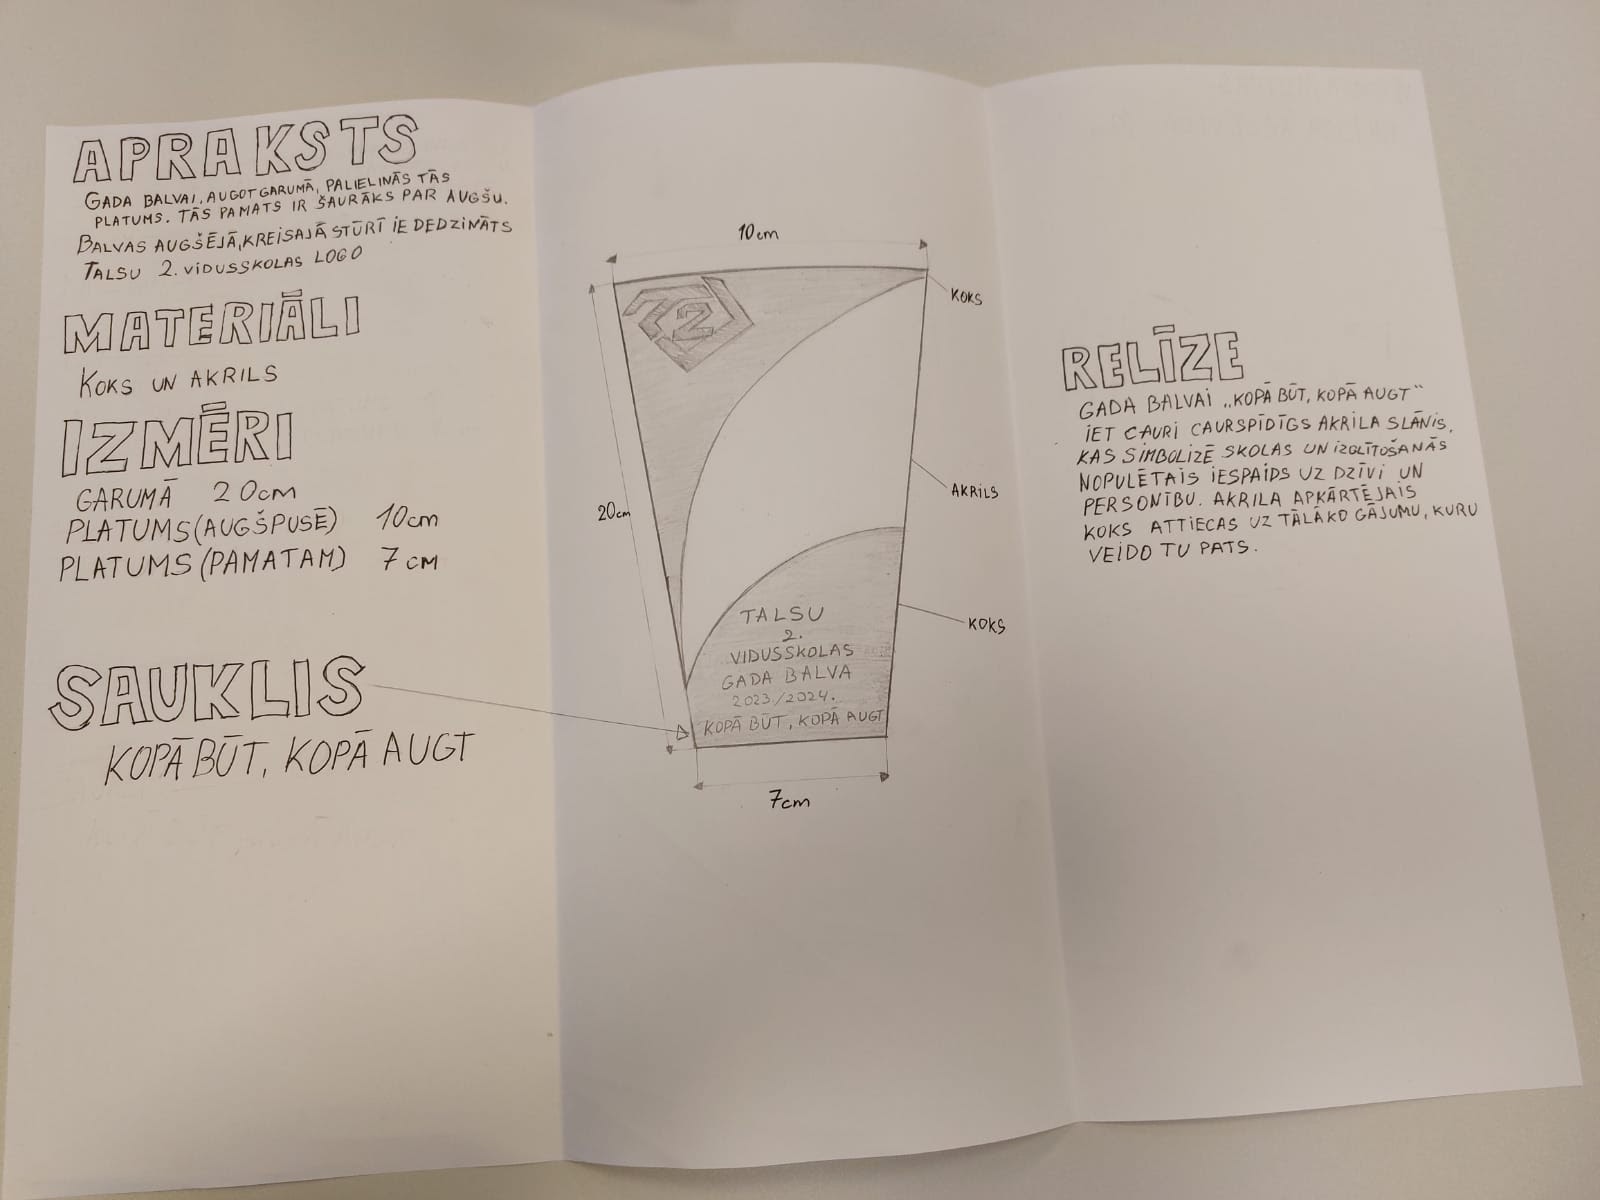 APRAKSTS
GADA BALVAI, AUGOT GARUMĀ, PALIELINĀS TĀS
PLATUMS. TĀS PAMATS IR ŠAURĀKS PAR AUGŠU.
BALVAS AUGŠĒJĀ, KREISAJĀ STŪRĪ IE DEDZINĀTS
TALSU 2. VIDUSSKOLAS LOGO
MATERIĀLI
KOKS UN AKRILS
IZMĒRI
GARUMĀ 20cm
PLATUMS (AUGŠPUSĒ) 10cm
PLATUMS (PAMATAM) 7cm
SAUKLIS
KOPĀ BŪT, KOPĀ AUGT
10cm
2
KOKS
AKRILS
20cm
KOKS
TALSU
2.
VIDUSSKOLAS
GADA BALVA
2023./2024.
KOPĀ BŪT, KOPĀ AUGT
7cm
RELĪZE
GADA BALVAI „KOPĀ BŪT, KOPĀ AUGT“
IET CAURI CAURSPĪDĪGS AKRILA SLĀNIS,
KAS SIMBOLIZĒ SKOLAS UN IZGLĪTOŠANĀS
NOPULĒTAIS IESPAIDS UZ DZĪVI UN
PERSONĪBU. AKRILA APKĀRTĒJAIS
KOKS ATTIECAS UZ TĀLĀKO GĀJUMU, KURU
VEIDO TU PATS.